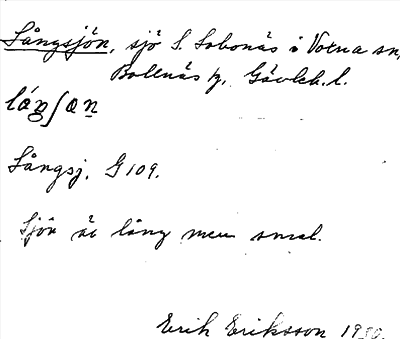 Långsjön, sjö S. Sobonäs i Voxna sn,
Bollnäs kp, Gävleb. l.
Långsj. G 109.
Sjön är lång men smal.
Erik Eriksson 19